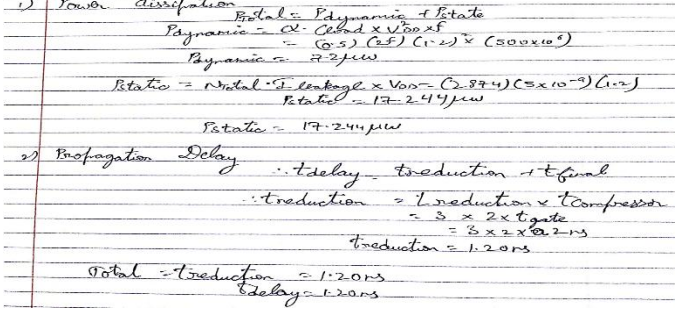 1) Power dissipation
Ptotal = Pdynamic + Pstate
Pdynamic = α. Cload x V²DD x f
= (0.5) (2f) (1.2)² x (500x10⁶)
Pdynamic = 7.2μw
Pstatic = Ntotal. I leakage x VDD = (2874) (5x10⁻⁹) (1.2)
Pstatic = 17.244μw
Pstatic = 17.244μw
2) Propagation Delay
∴ tdelay = treduction + tfinal
∴ treduction = Lreduction x tcompressor
= 3 x 2 x tgate
= 3 x 2 x 0.2ns
treduction = 1.20ns
Total = treduction = 1.20ns
tdelay = 1.20ns